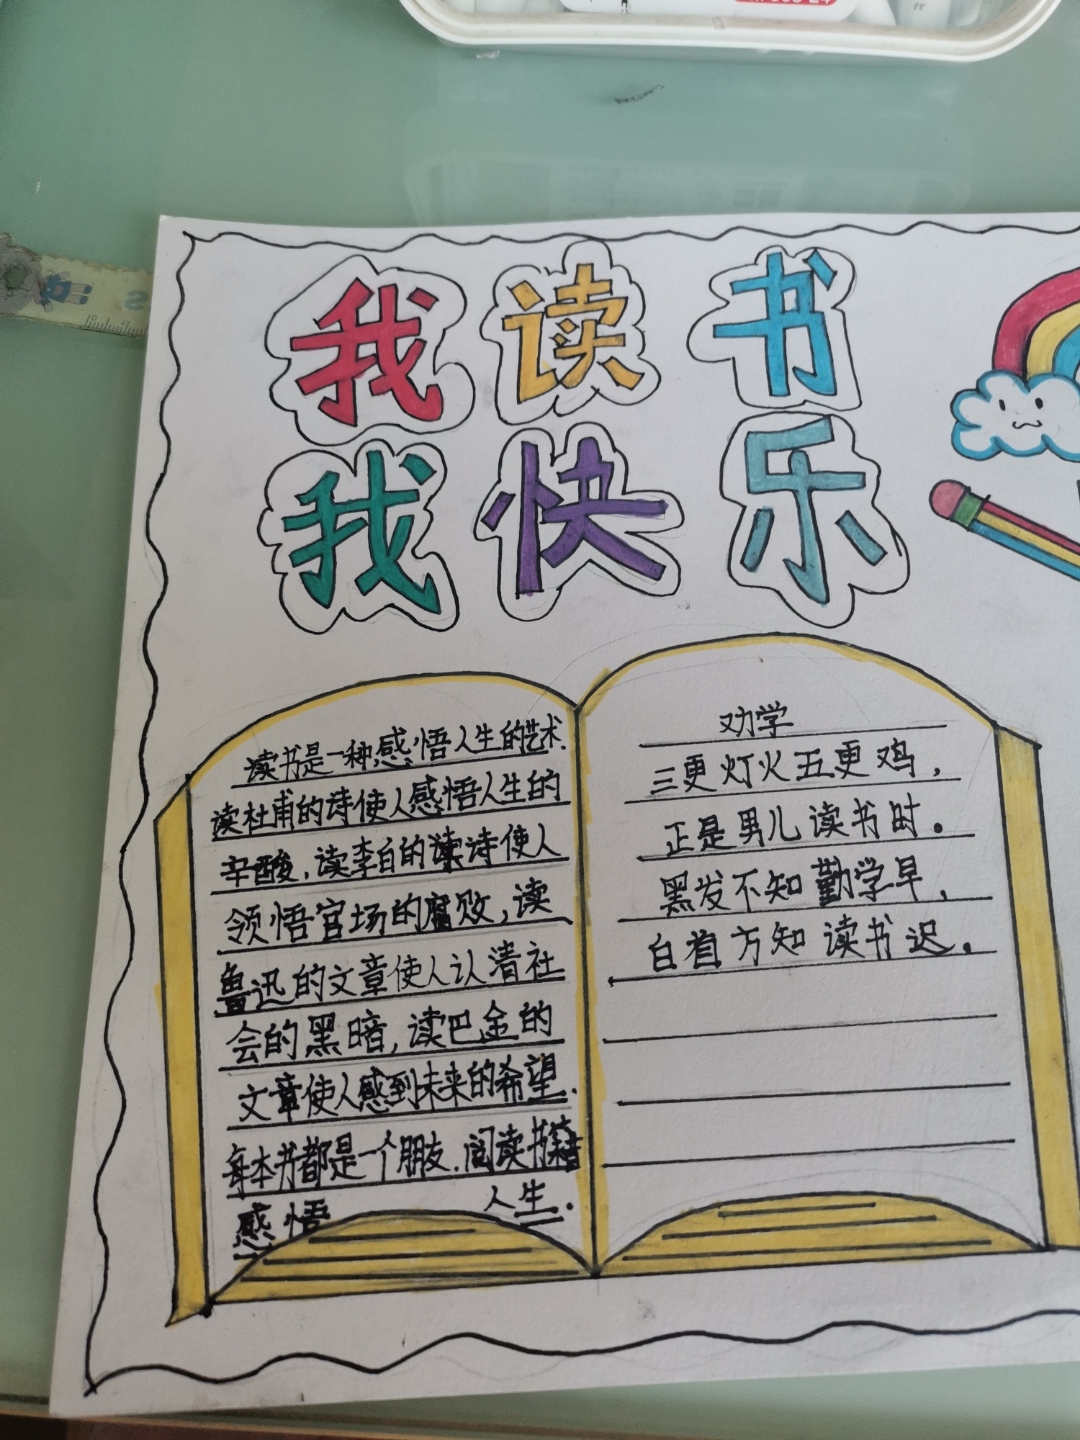 我读书
我快乐
读书是一种感悟人生的艺术.
读杜甫的诗使人感悟人生的
辛酸,读李白的诗使人
领悟官场的腐败,读
鲁迅的文章使人认清社
会的黑暗,读巴金的
文章使人感到未来的希望.
每本书都是一个朋友.阅读书籍
感悟 人生.
劝学
三更灯火五更鸡,
正是男儿读书时。
黑发不知勤学早,
白首方知读书迟。